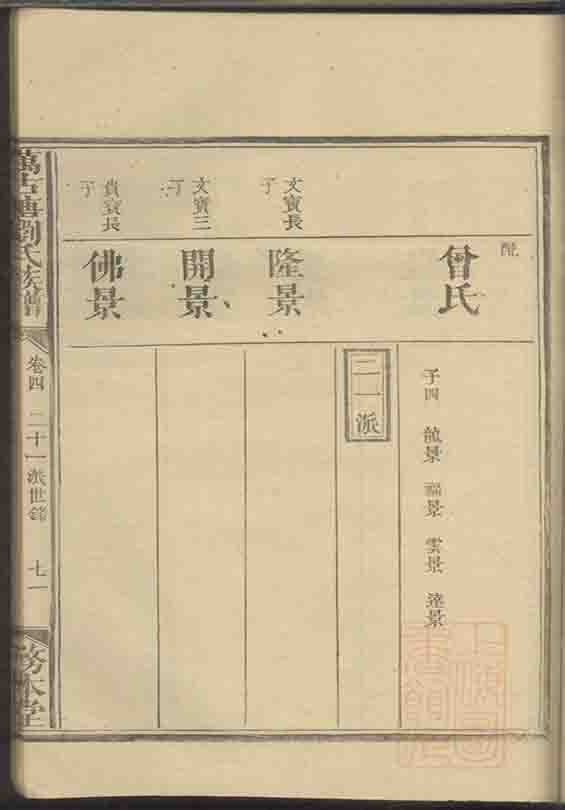 配
曾氏
子四 龍景 福景 雲景 達景
二一派
文寳長子
隆景
文寳三子
開景
貴寳長子
佛景
萬古塘劉氏族譜
卷四 二十一派世錄 七一
務本堂